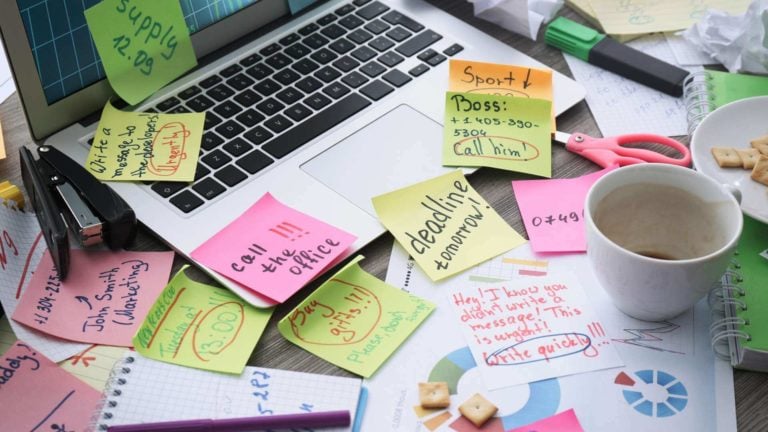 supply
12.09
Write a
message to
the developers
Urgently
Sport ↓
Boss:
+1 405-390-
5304
Call him!
deadline
tomorrow!
0749
call !!!
the office
+1 309
John Smith
(Marketing)
Tuesday
at 13:00
Buy
gifts!!!
Please, don't
Hey! I know you
didn't write a
message! This
is urgent!
Write quickly!!!